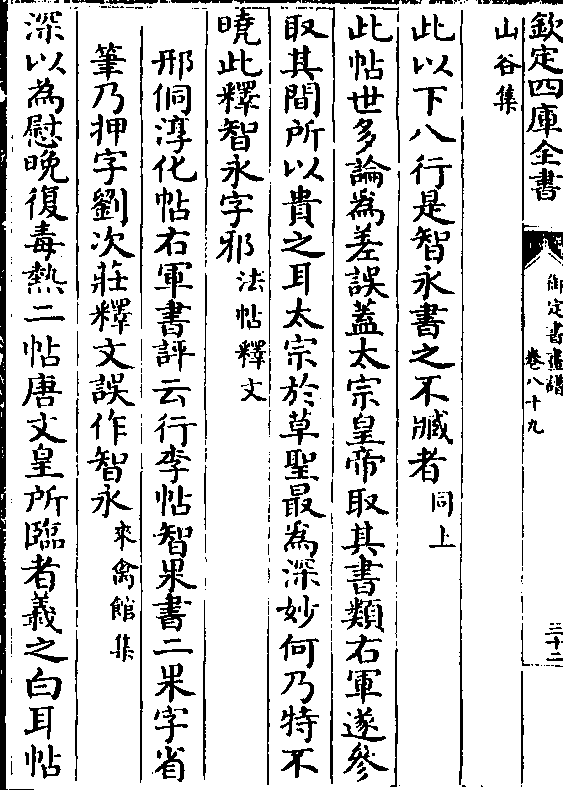 欽定四庫全書
御定書畫譜
卷八十九
三十二
山谷集
此以下八行是智永書之不臧者同上
此帖世多論為差誤蓋太宗皇帝取其書類右軍遂參
取其間所以貴之耳太宗於草聖最為深妙何乃特不
曉此釋智永字邪法帖釋文
邢侗淳化帖右軍書評云行李帖智果書二果字省
筆乃押字劉次莊釋文誤作智永來禽館集
深以為慰晚復毒熱二帖唐文皇所臨者羲之白耳帖